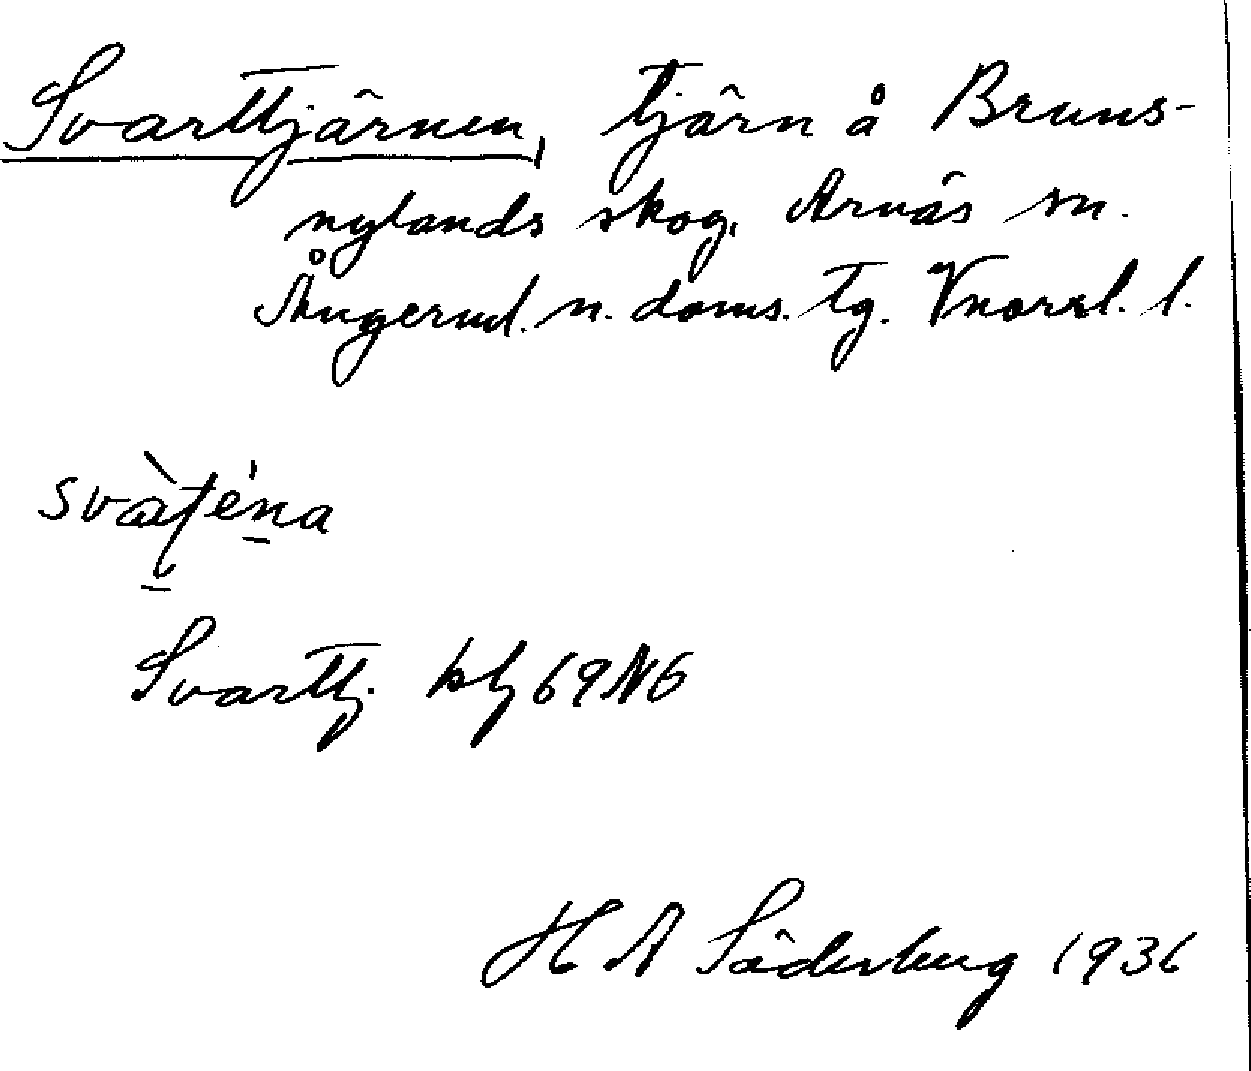 Svarttjärnen, tjärn å Bruns-
nylands skog, Arnäs sn.
Ångerml. n. doms. tg. Vnorrl. l.
Svarttj. kbl 69 NG
H A Söderberg 1936